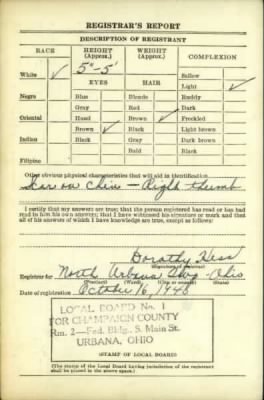 REGISTRAR'S REPORT
DESCRIPTION OF REGISTRANT
RACE HEIGHT (Approx.) WEIGHT (Approx.) COMPLEXION
5"-5' Sallow
White ✓ EYES HAIR Light ✓
Negro Blue Blonde Ruddy
Gray Red Dark
Oriental Hazel Brown ✓ Freckled
Brown ✓ Black Light brown
Indian Black Gray Dark brown
Bald Black
Filipino
Other obvious physical characteristics that will aid in identification
Scar on Chin – Right thumb
I certify that my answers are true; that the person registered has read or has had
read to him his own answers; that I have witnessed his signature or mark and that
all of his answers of which I have knowledge are true, except as follows:
Dorothy Hess
Registrar for North Urbana Twp. Ohio
(Precinct) (State)
Date of registration October 16, 1940
LOCAL BOARD No. 1
FOR CHAMPAIGN COUNTY
Rm. 2—Fed. Bldg. S. Main St.
URBANA, OHIO
(STAMP OF LOCAL BOARD)
(The stamp of the Local Board having jurisdiction of the registrant
shall be placed in the above space)